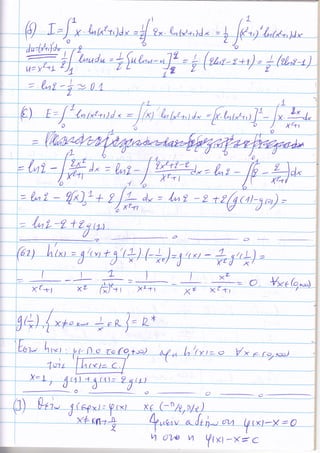 (δ) I=∫₀¹ x·ln(x²+1)dx = ½∫₀¹ 2x·ln(x²+1)dx = ½∫₀¹ (x²+1)' ln(x²+1)dx
u=x²+1 ½∫₁² lnu du = ½[u lnu-u]₁² = ½(2ln2-2+1) = ½(2ln2-1)
= ln2-½ ≈ 0.1
(ε) E=∫₀¹ ln(x²+1)dx = ∫₀¹ (x)' ln(x²+1)dx = [x·ln(x²+1)]₀¹ - ∫₀¹ x·2x/(x²+1) dx
= ln2 - ∫₀¹ 2x²/(x²+1) dx = ln2 - ∫₀¹ (2x²+2-2)/(x²+1) dx = ln2 - ∫₀¹ [2 - 2/(x²+1)] dx
= ln2 - 2[x]₀¹ + 2∫₀¹ 1/(x²+1) dx = ln2 - 2 + 2(g(1)-g(0)) =
= ln2 - 2 + 2g(1).
h'(x) = g'(x) + g'(1/x)(-1/x²) = g'(x) - 1/x² g'(1/x) =
= 1/(x²+1) - 1/x² · 1/((1/x)²+1) = 1/(x²+1) - 1/x² · x²/(x²+1) = 0. ∀x∈(0,∞)
g(1/x), {x≠0 και 1/x ∈R} = R*
Εστω h(x) με Π.Ο το (0,+∞) αρα h'(x)=0 ∀x∈(0,∞)
τοτε h(x)=c
x=1, g(1)+g(1) = 2g(1)
Θετω g(εφx)=φ(x) x∈(-π/2,π/2)
φ(x)-x=0
φ(x)-x=c